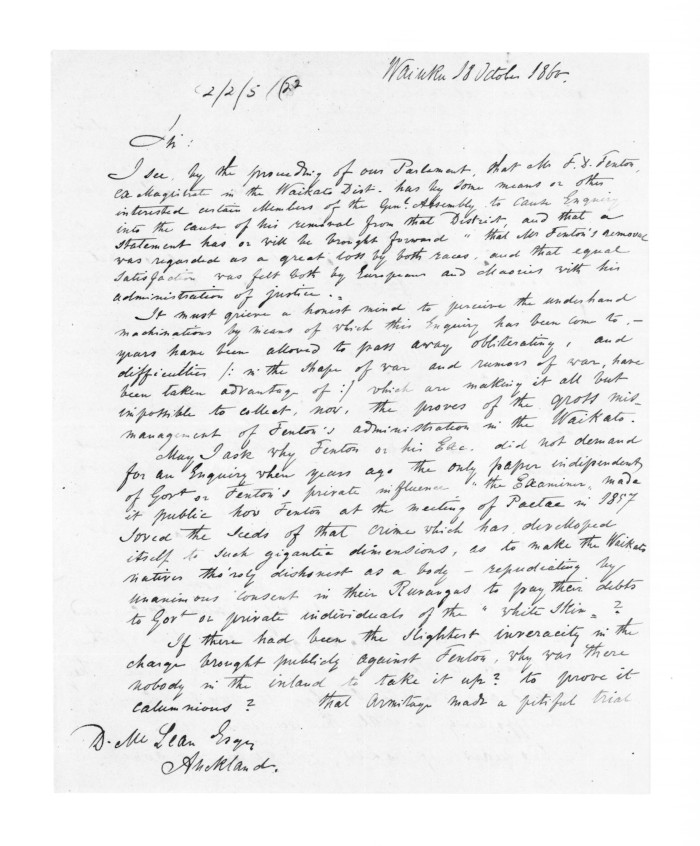 Waiuku 18 October 1860.
2/2/5/22
Sir:
I see, by the proceeding of our Parlement, that Mr F. D. Fenton,
Ex Magistrate in the Waikato Dist. has by some means or other
interested certain Members of the Genl. Assembly to cause Enquiry
into the cause of his removal from that District, and that a
statement has or will be brought forward " that Mr Fenton's removal
was regarded as a great loss by both races, and that equal
satisfaction was felt both by Europeans and Maories with his
administration of justice. "
It must grieve a honest mind to perceive the underhand
machinations by means of which this Enquiry has been come to, –
years have been allowed to pass away obliterating, and
difficulties /: in the shape of war and rumors of war, have
been taken advantage of :/ which are making it all but
impossible to collect, now, the proves of the gross mis-
management of Fenton's administration in the Waikato.
May I ask why Fenton or his Exc. did not demand
for an Enquiry when years ago the only paper independent
of Govt or Fenton's private influence " the Examiner " made
it public how Fenton at the meeting of Paetae in 1857
soved the seeds of that crime which has developed
itself to such gigantia dimensions, as to make the Waikato
natives tho'roly dishonest as a body – repudiating by
unanimous consent in their Runangas to pay their debts
to Govt or private individuals of the " white skin " ?
If there had been the slightest inveracity in the
charge brought publicly against Fenton, why was there
nobody in the inland to take it up? to prove it
calumnious ? that Armitage made a pitiful trial
D. Mc Lean Esqr
Auckland.